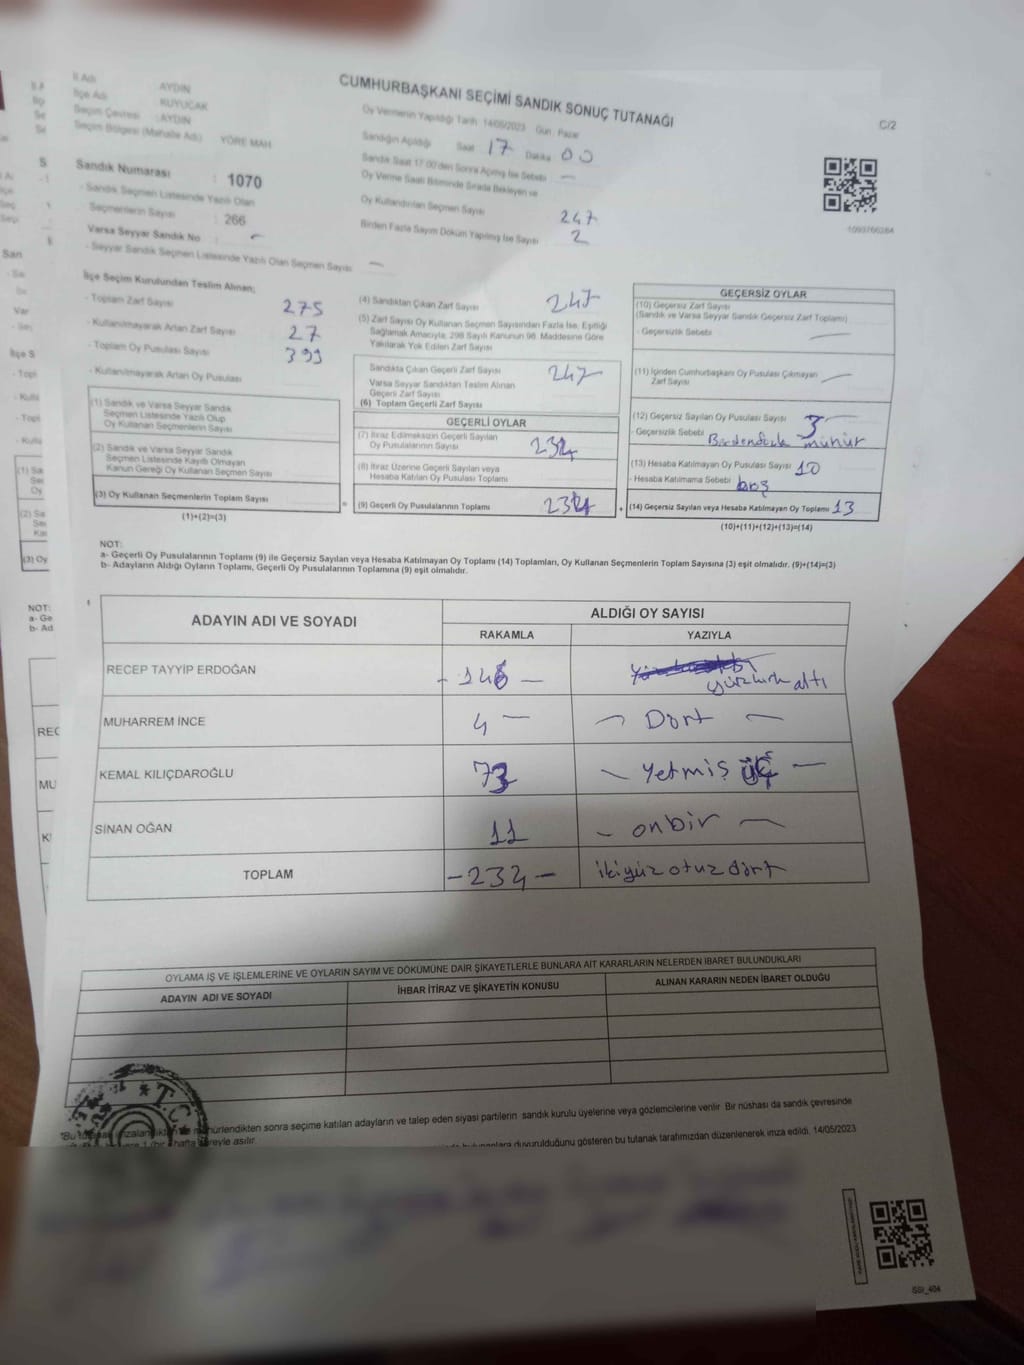 CUMHURBAŞKANI SEÇİMİ SANDIK SONUÇ TUTANAĞI
C/2
İl Adı : AYDIN
İlçe Adı : KUYUCAK
Seçim Çevresi : AYDIN
Seçim Bölgesi (Mahalle Adı) YÖRE MAH
Sandık Numarası : 1070
- Sandık Seçmen Listesinde Yazılı Olan
Seçmenlerin Sayısı : 266
Varsa Seyyar Sandık No : -
- Seyyar Sandık Seçmen Listesinde Yazılı Olan Seçmen Sayısı —
Oy Vermenin Yapıldığı Tarih 14/05/2023 Gün : Pazar
Sandığın Açıldığı Saat 17 Dakika 00
Sandık Saat 17.00'den Sonra Açılmış İse Sebebi —
Oy Verme Saati Bitiminde Sırada Bekleyen ve
Oy Kullandırılan Seçmen Sayısı 247
Birden Fazla Sayım Döküm Yapılmış İse Sayısı 2
1093766284
İlçe Seçim Kurulundan Teslim Alınan;
- Toplam Zarf Sayısı 275
- Kullanılmayarak Artan Zarf Sayısı 27
- Toplam Oy Pusulası Sayısı 399
- Kullanılmayarak Artan Oy Pusulası
(1) Sandık ve Varsa Seyyar Sandık
Seçmen Listesinde Yazılı Olup
Oy Kullanan Seçmenlerin Sayısı
(2) Sandık ve Varsa Seyyar Sandık
Seçmen Listesinde Kayıtlı Olmayan
Kanun Gereği Oy Kullanan Seçmen Sayısı
(3) Oy Kullanan Seçmenlerin Toplam Sayısı
(1)+(2)=(3)
(4) Sandıktan Çıkan Zarf Sayısı 247
(5) Zarf Sayısı Oy Kullanan Seçmen Sayısından Fazla İse, Eşitliği
Sağlamak Amacıyla, 298 Sayılı Kanunun 98. Maddesine Göre
Yakılarak Yok Edilen Zarf Sayısı
Sandıkta Çıkan Geçerli Zarf Sayısı 247
Varsa Seyyar Sandıktan Teslim Alınan
Geçerli Zarf Sayısı
(6) Toplam Geçerli Zarf Sayısı
GEÇERLİ OYLAR
(7) İtiraz Edilmeksizin Geçerli Sayılan
Oy Pusulalarının Sayısı 234
(8) İtiraz Üzerine Geçerli Sayılan veya
Hesaba Katılan Oy Pusulası Toplamı
(9) Geçerli Oy Pusulalarının Toplamı 234
GEÇERSİZ OYLAR
(10) Geçersiz Zarf Sayısı
(Sandık ve Varsa Seyyar Sandık Geçersiz Zarf Toplamı)
- Geçersizlik Sebebi —
(11) İçinden Cumhurbaşkanı Oy Pusulası Çıkmayan
Zarf Sayısı —
(12) Geçersiz Sayılan Oy Pusulası Sayısı 3
- Geçersizlik Sebebi mühür
(13) Hesaba Katılmayan Oy Pusulası Sayısı 10
- Hesaba Katılmama Sebebi boş
(14) Geçersiz Sayılan veya Hesaba Katılmayan Oy Toplamı 13
(10)+(11)+(12)+(13)=(14)
NOT:
a- Geçerli Oy Pusulalarının Toplamı (9) ile Geçersiz Sayılan veya Hesaba Katılmayan Oy Toplamı (14) Toplamları, Oy Kullanan Seçmenlerin Toplam Sayısına (3) eşit olmalıdır. (9)+(14)=(3)
b- Adayların Aldığı Oyların Toplamı, Geçerli Oy Pusulalarının Toplamına (9) eşit olmalıdır.
ADAYIN ADI VE SOYADI
ALDIĞI OY SAYISI
RAKAMLA YAZIYLA
RECEP TAYYİP ERDOĞAN - 146 — yüzkırk altı
MUHARREM İNCE 4 — — Dört —
KEMAL KILIÇDAROĞLU 73 — Yetmiş üç —
SİNAN OĞAN 11 — onbir —
TOPLAM -234- ikiyüz otuz dört
OYLAMA İŞ VE İŞLEMLERİNE VE OYLARIN SAYIM VE DÖKÜMÜNE DAİR ŞİKAYETLERLE BUNLARA AİT KARARLARIN NELERDEN İBARET BULUNDUKLARI
ADAYIN ADI VE SOYADI İHBAR İTİRAZ VE ŞİKAYETİN KONUSU ALINAN KARARIN NEDEN İBARET OLDUĞU
T.C.
sonra seçime katılan adayların ve talep eden siyasi partilerin sandık kurulu üyelerine veya gözlemcilerine verilir. Bir nüshası da sandık çevresinde
1 (bir) hafta süreyle asılır.
duyurulduğunu gösteren bu tutanak tarafımızdan düzenlenerek imza edildi. 14/05/2023
SSI_404